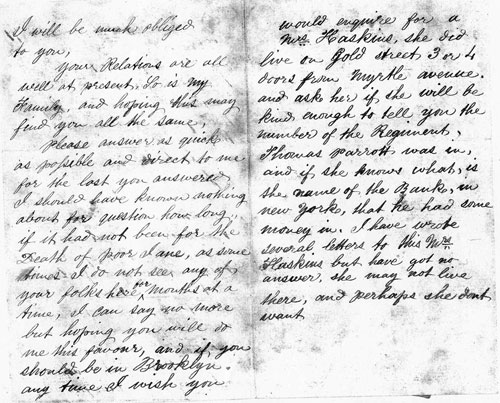 I will be much obliged
to you,
your Relations are all
well at present, So is my
Family, and hoping this may
find you all the same,
Please answer as quick
as possible and direct to me
for the last you answered
I should have known nothing
about for question how long,
if it had not been for the
Death of poor Jane, as some
times I do not see any of
your folks here for months at a
time, I can say no more
but hoping you will do
me this favour, and if you
should be in Brooklyn.
any time I wish you
would enquire for a
Mrs Haskins, she did
live on Gold street 3 or 4
doors from Myrtle avenue.
and ask her if she will be
kind enough to tell you the
number of the Regiment,
Thomas Parrott was in,
and if she knows what, is
the name of the Bank, in
new York, that he had some
money in. I have wrote
several letters to this Mrs
Haskins but have got no
answer, she may not live
there, and perhaps she dont
want